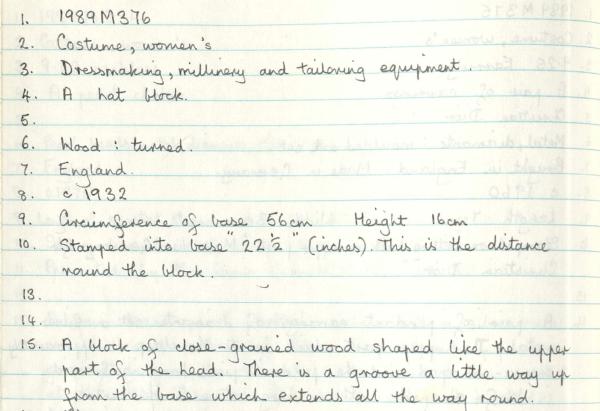 1. 1989M376
2. Costume, women's
3. Dressmaking, millinery and tailoring equipment.
4. A hat block.
5.
6. Wood : turned.
7. England.
8. c 1932
9. Circumference of base 56cm Height 16cm
10. Stamped into base "22 ½" (inches). This is the distance
round the block.
13.
14.
15. A block of close-grained wood shaped like the upper
part of the head. There is a groove a little way up
from the base which extends all the way round.